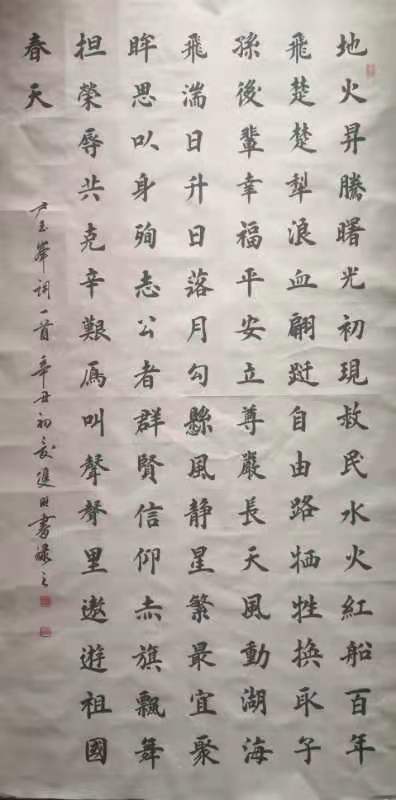 地火昇騰曙光初現救民水火紅船百年
飛楚楚犁浪血翩跹自由路牺牲换取子
孫後輩幸福平安立尊嚴長天風動湖海
飛湍日升日落月勾懸風静星繁最宜聚
眸思以身殉志公者群賢信仰赤旗飄舞
担榮辱共克辛艱雁叫聲聲里遨遊祖國
春天
尹玉峯词一首辛丑初玄進田書录之